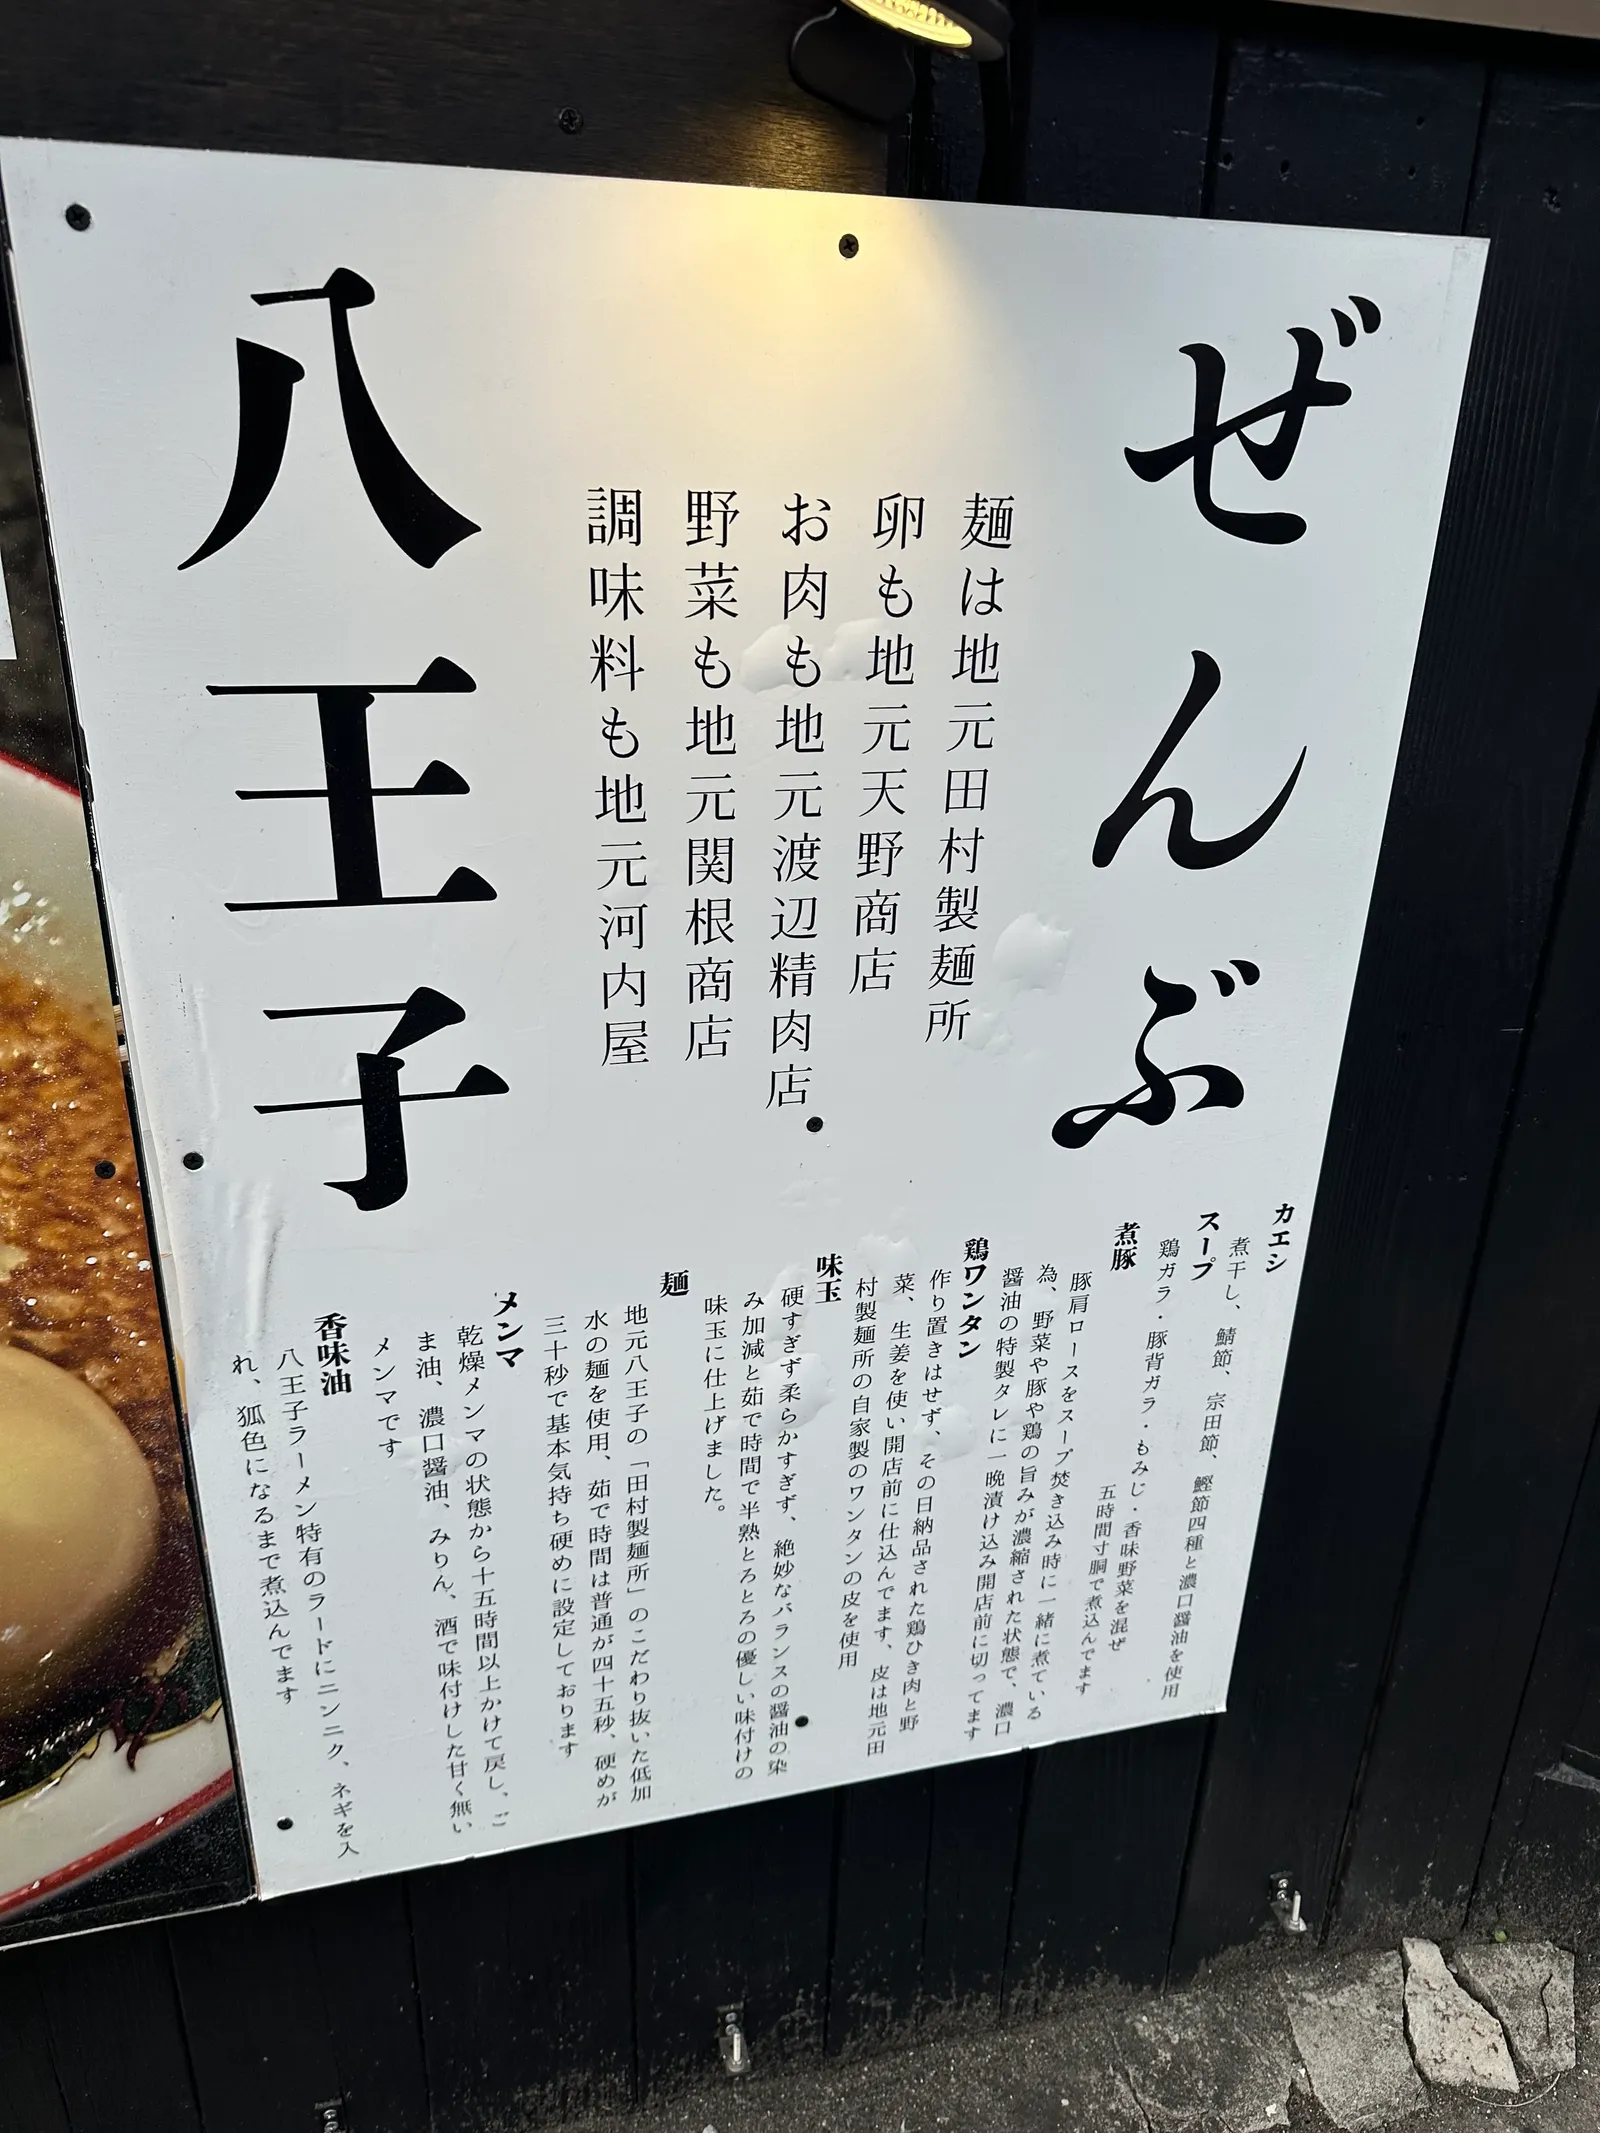 ぜんぶ
麺は地元田村製麺所
卵も地元天野商店
お肉も地元渡辺精肉店
野菜も地元関根商店
調味料も地元河内屋
八王子
カエシ
煮干し、鯖節、宗田節、鰹節四種と濃口醤油を使用
スープ
鶏ガラ・豚背ガラ・もみじ・香味野菜を混ぜ
五時間寸胴で煮込んでます
煮豚
豚肩ロースをスープ焚き込み時に一緒に煮ている
為、野菜や豚や鶏の旨みが濃縮された状態で、濃口
醤油の特製タレに一晩漬け込み開店前に切ってます
鶏ワンタン
作り置きはせず、その日納品された鶏ひき肉と野
菜、生姜を使い開店前に仕込んでます、皮は地元田
村製麺所の自家製のワンタンの皮を使用
味玉
硬すぎず柔らかすぎず、絶妙なバランスの醤油の染
み加減と茹で時間で半熟とろとろの優しい味付けの
味玉に仕上げました。
麺
地元八王子の「田村製麺所」のこだわり抜いた低加
水の麺を使用、茹で時間は普通が四十五秒、硬めが
三十秒で基本気持ち硬めに設定しております
メンマ
乾燥メンマの状態から十五時間以上かけて戻し、ご
ま油、濃口醤油、みりん、酒で味付けした甘く無い
メンマです
香味油
八王子ラーメン特有のラードにニンニク、ネギを入
れ、狐色になるまで煮込んでます